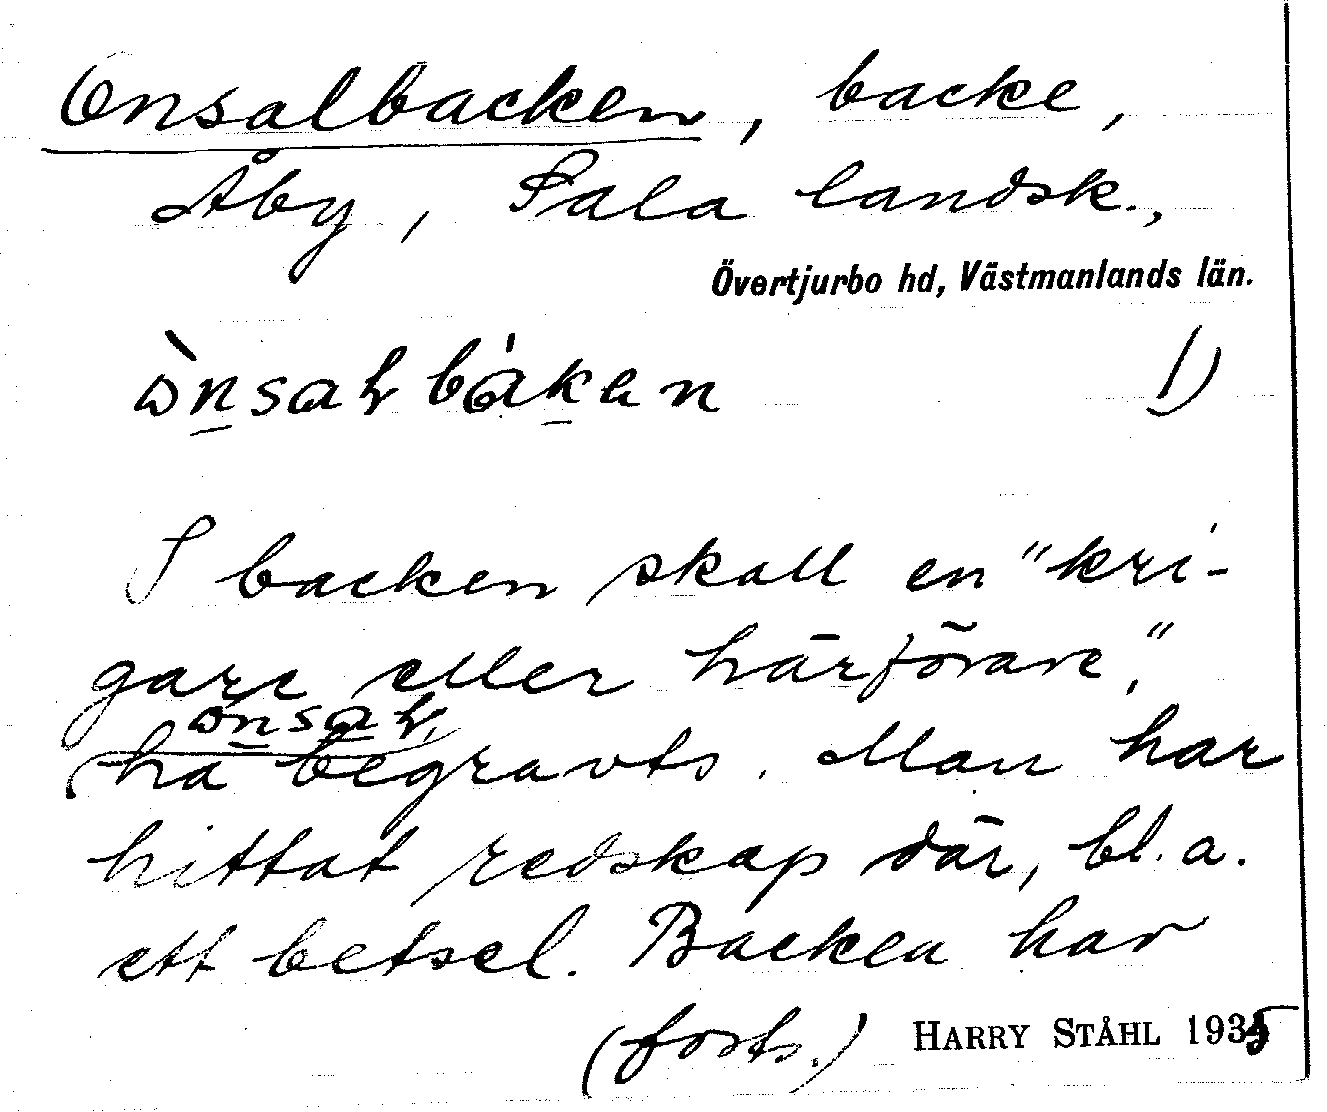 Onsalbacken, backe,
Åby, Sala landsk.,
Övertjurbo hd, Västmanlands län.
1)
I backen skall en "kri-
gare eller härförare",
ha begravts. Man har
hittat redskap där, bl.a.
ett betsel. Backen har
(forts.) HARRY STÅHL 1935